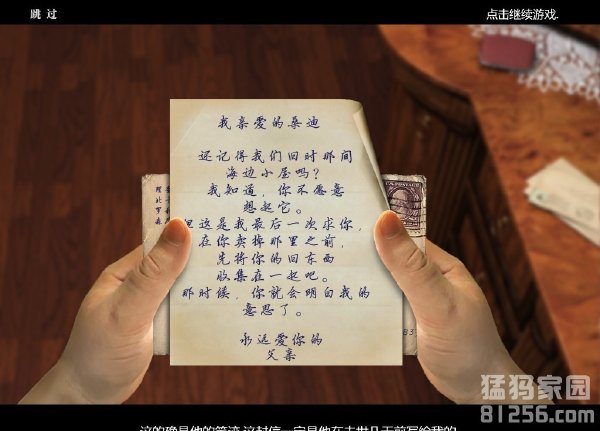 跳 过
点击继续游戏.
我亲爱的桑迪
还记得我们旧时那间
海边小屋吗？
我知道，你不愿意
想起它。
但这是我最后一次求你，
在你卖掉那里之前，
先将你的旧东西
收集在一起吧。
那时候，你就会明白我的
意思了。
永远爱你的
父亲
猛犸家园
81256.com